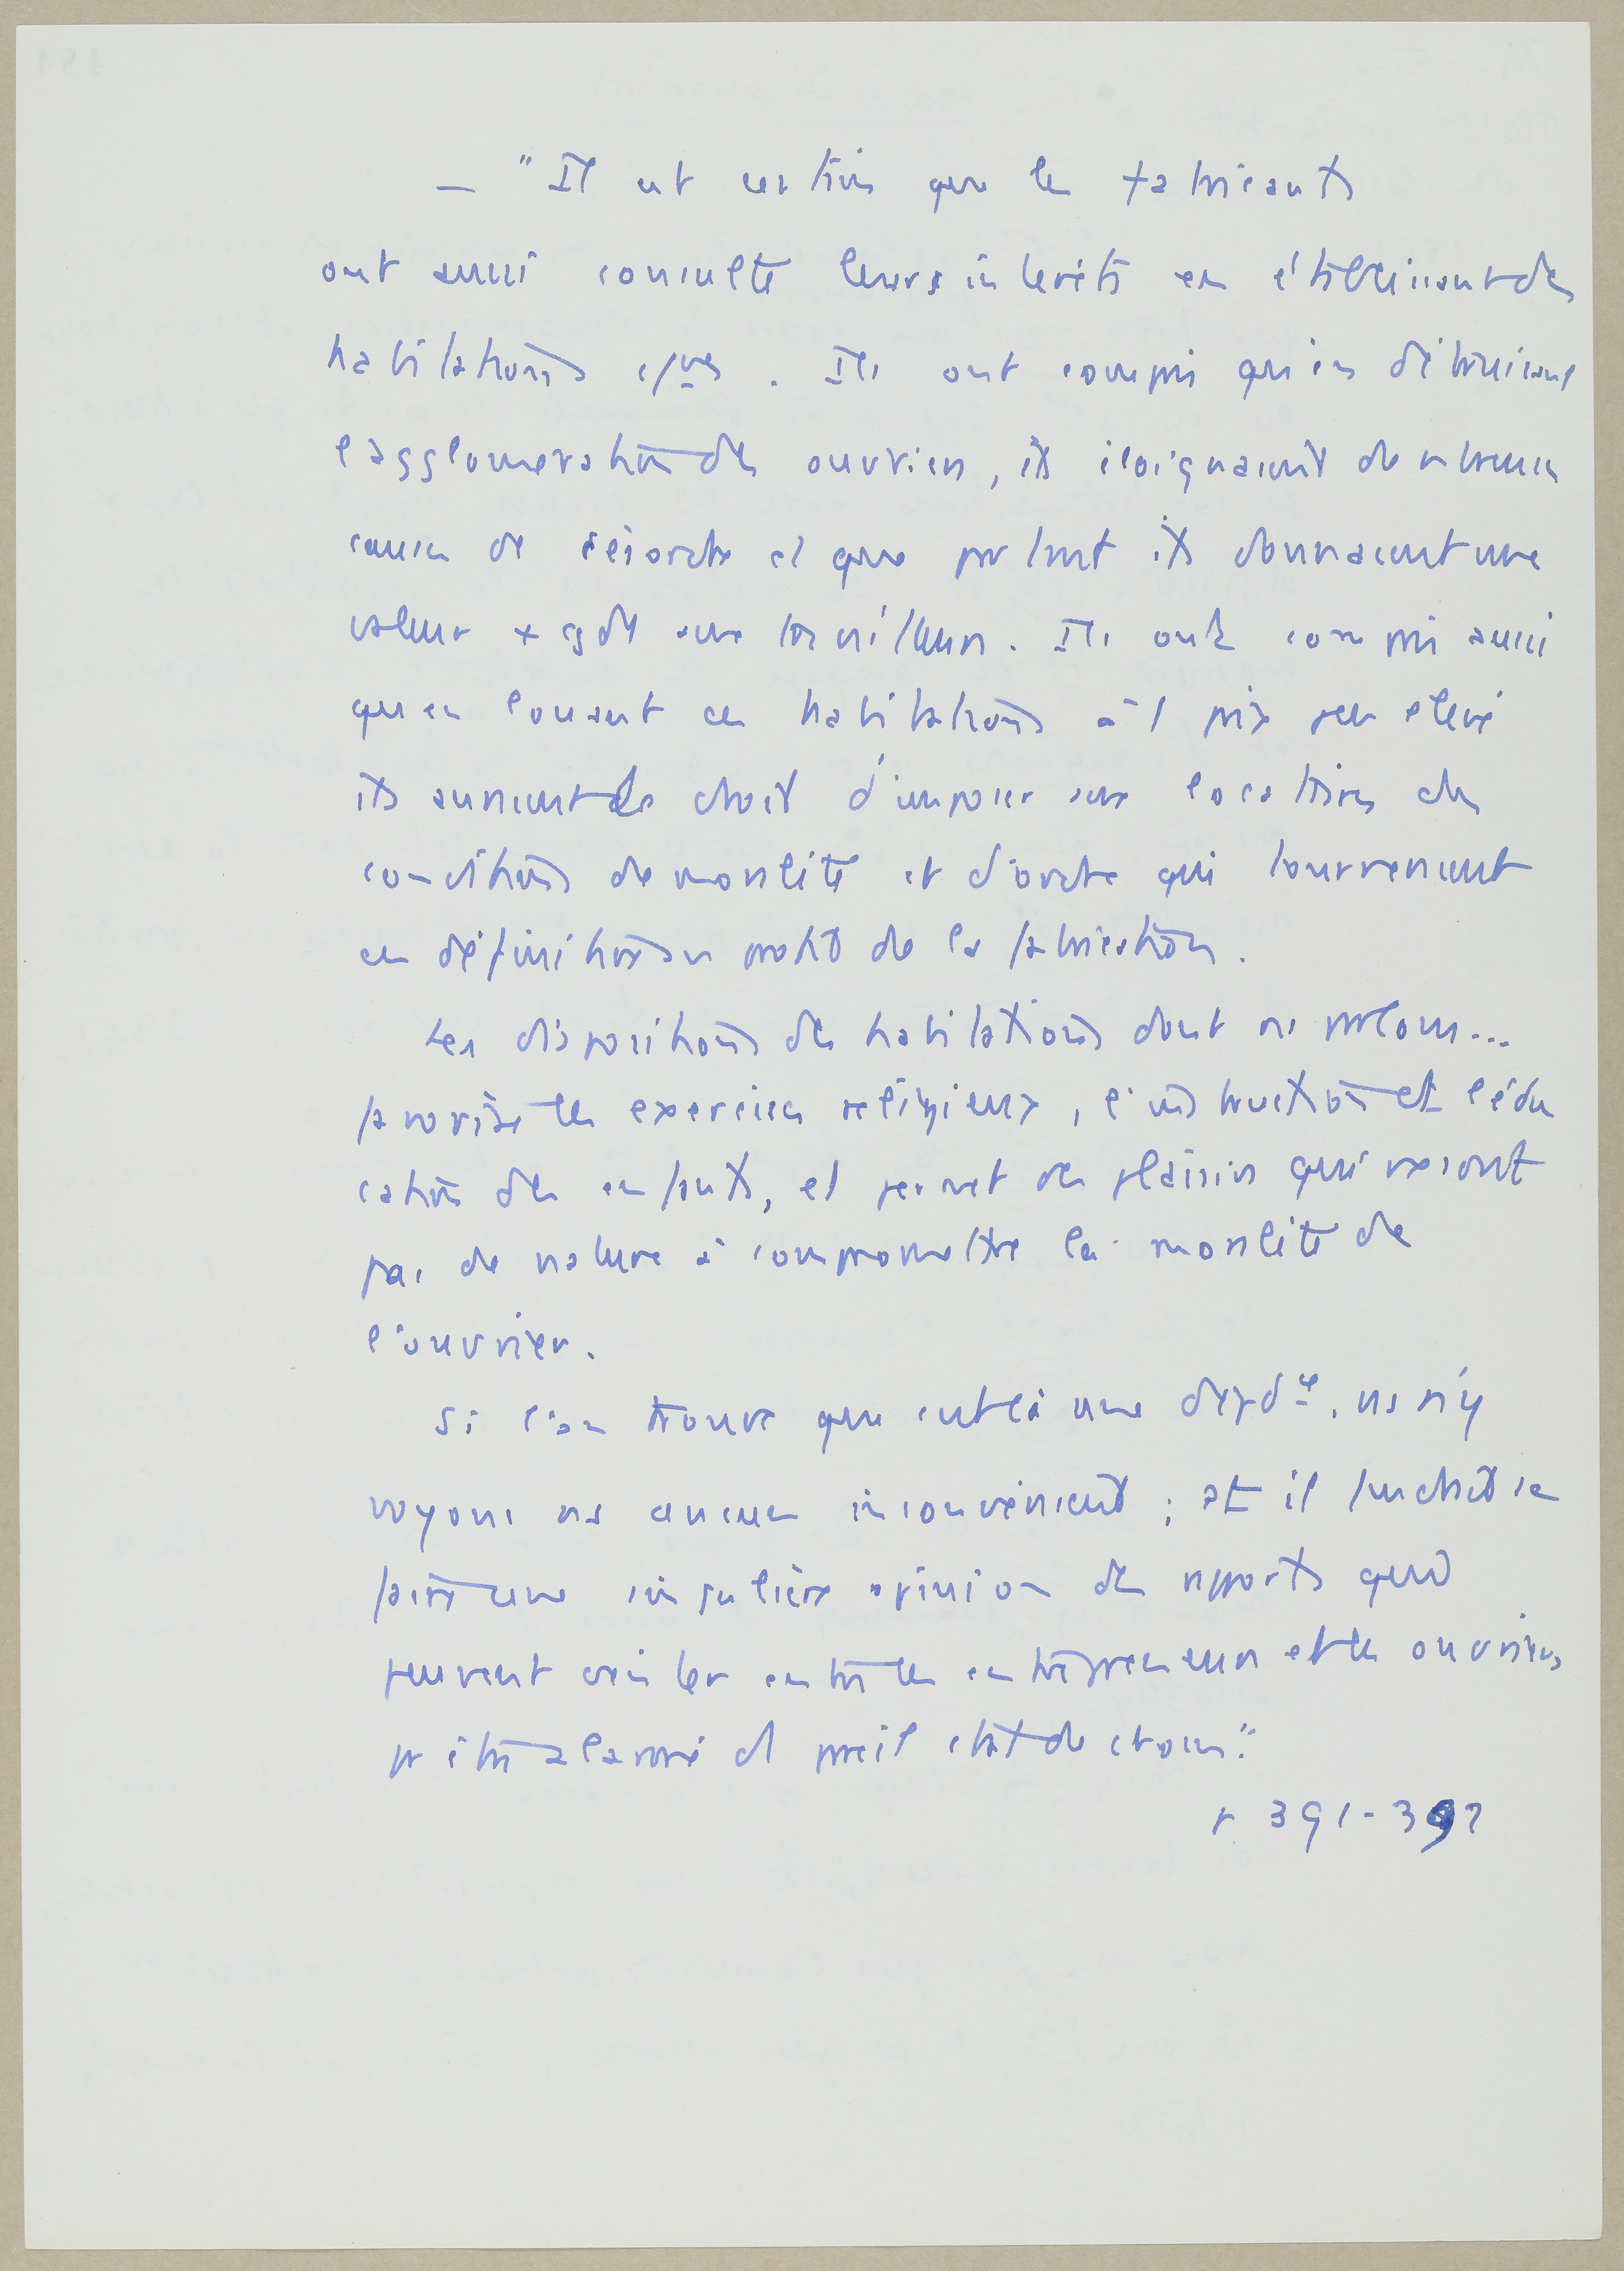 — "Il est certain que les fabricants
ont aussi consulté leurs intérêts en établissant des
habitations c/ves. Ils ont compris qu'en détruisant
l'agglomération des ouvriers, ils éloignaient de nbreuses
causes de désordre et que partant ils donnaient une
valeur + gde aux travailleurs. Ils ont compris aussi
qu'en louant ces habitations à 1 prix peu élevé
ils auraient le droit d'imposer aux locataires des
conditions de moralité et d'ordre qui tourneraient
en définition au profit de la fabrication.
Les dispositions des habitations dont ns parlons...
favorise les exercices religieux, l'instruction et l'édu
cation des enfants, et permet des plaisirs qui ne sont
pas de nature à compromettre la moralité de
l'ouvrier.
Si l'on trouve que c'est là une dépdce, ns n'y
voyons ns aucun inconvénient ; et il faudrait se
faire une singulière opinion des rapports qui
peuvent exister entre les entrepreneurs et les ouvriers
pr être alarmé d'1 pareil état de choses."
p 391-392